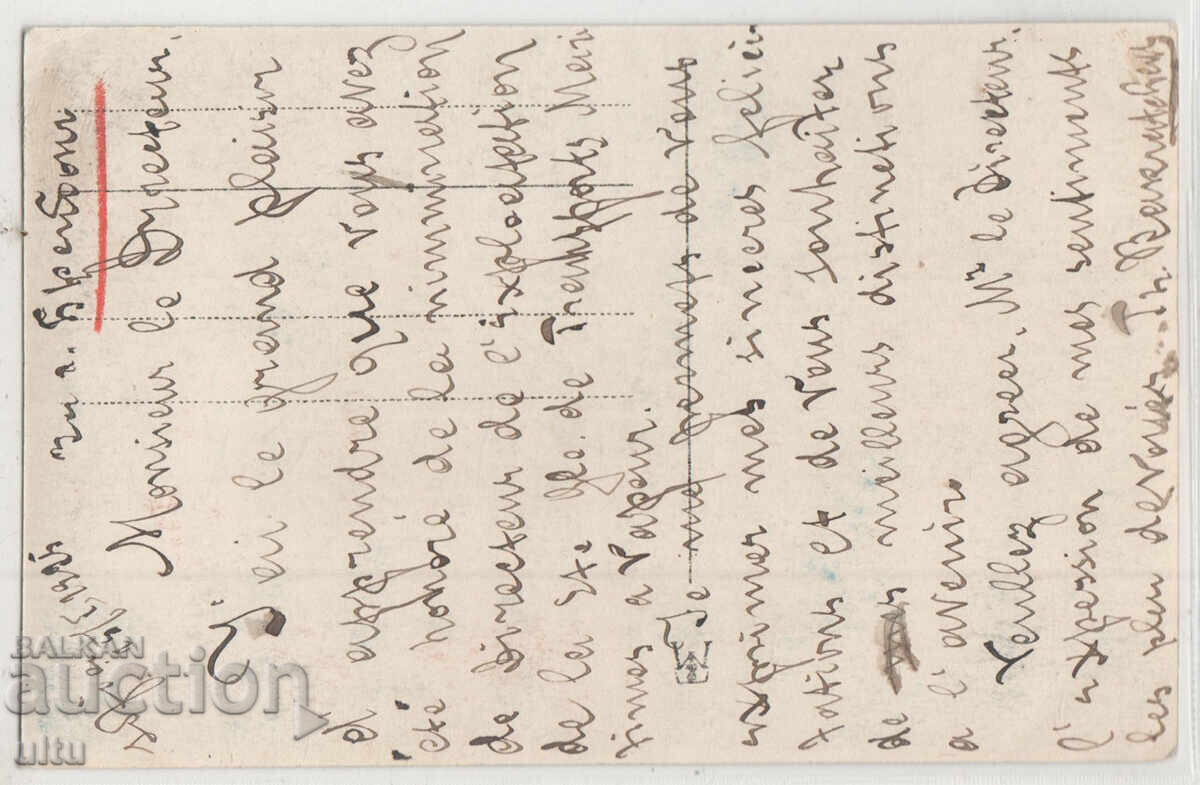 Monsieur le Dyrecteur.
J'ai le grand plaisir
d'apprendre que Vous avez
été nommé de la nimmination
de Directeur de l'Exploatation
de la Ste. Gle. de Transports Mari
times a Vapeur.
Je me permets de Vous
exprimer mes sinceres felici
tations et de Vous souhaiter
de meilleurs distinctions
a l'avenir
Veullez agreer. Mr le Directeur.
l'expression de mes sentiments
les plus
BALKAN
auction
ultu